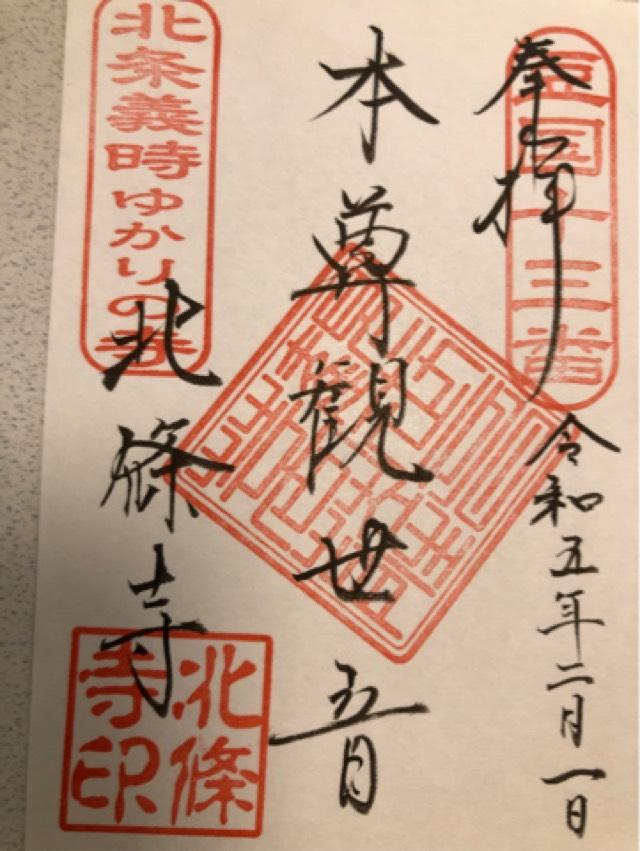 豆国十三番
奉拝
令和五年二月一日
本尊観世音
北条義時ゆかりの寺
北條寺
北條
寺印